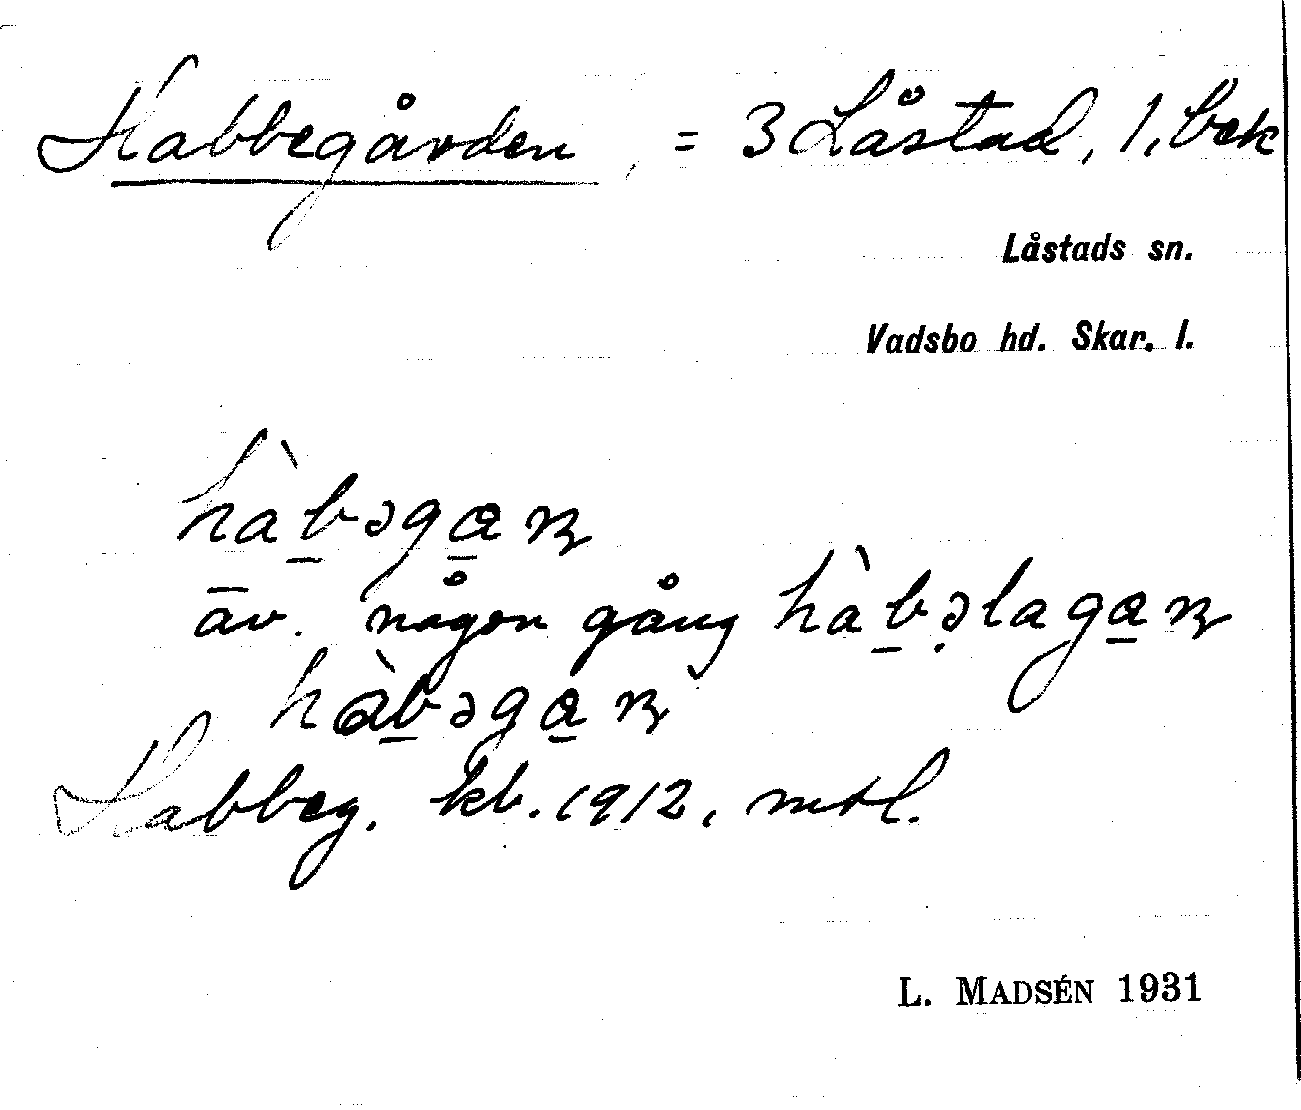 Habbegården, = 3 Låstad, 1, bek
Låstads sn.
Vadsbo hd. Skar. l.
hàb̲əga̲ɳ
äv. någon gång hàb̲əlaga̲ɳ
hàb̲əga̲ɳ
Habbeg. kb. 1912, mtl.
L. MADSÉN 1931